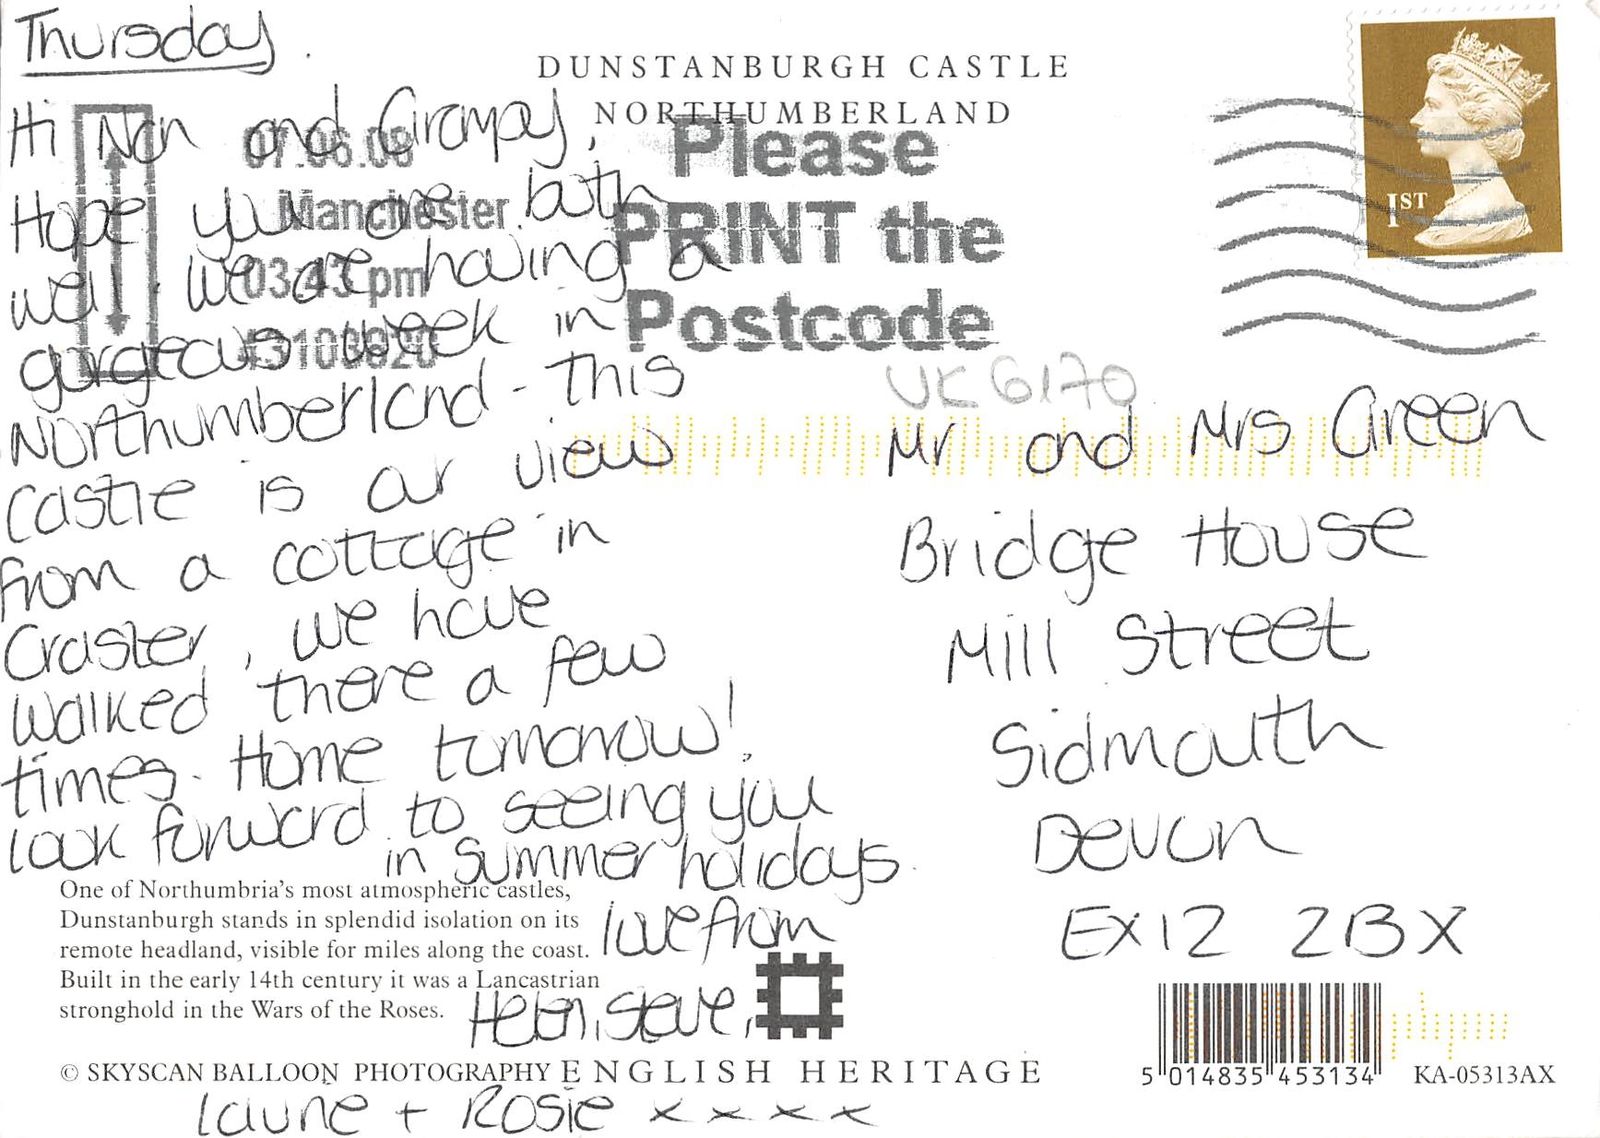 Thursday.
Hi Nan and Grampy,
Hope you are both
well. We are having a
gorgeous week in
Northumberland - this
castle is our view
from a cottage in
Craster, we have
walked there a few
times. Home tomorrow!
Look forward to seeing you
in summer holidays.
love from
Helen, Steve,
Laurie + Rosie x x x x
DUNSTANBURGH CASTLE
NORTHUMBERLAND
07.06.08
Manchester
03:43 pm
Please
PRINT the
Postcode
1ST
UK 6170
Mr and Mrs Green
Bridge House
Mill Street
Sidmouth
Devon
EX12 2BX
One of Northumbria's most atmospheric castles,
Dunstanburgh stands in splendid isolation on its
remote headland, visible for miles along the coast.
Built in the early 14th century it was a Lancastrian
stronghold in the Wars of the Roses.
© SKYSCAN BALLOON PHOTOGRAPHY ENGLISH HERITAGE
5 014835 453134
KA-05313AX